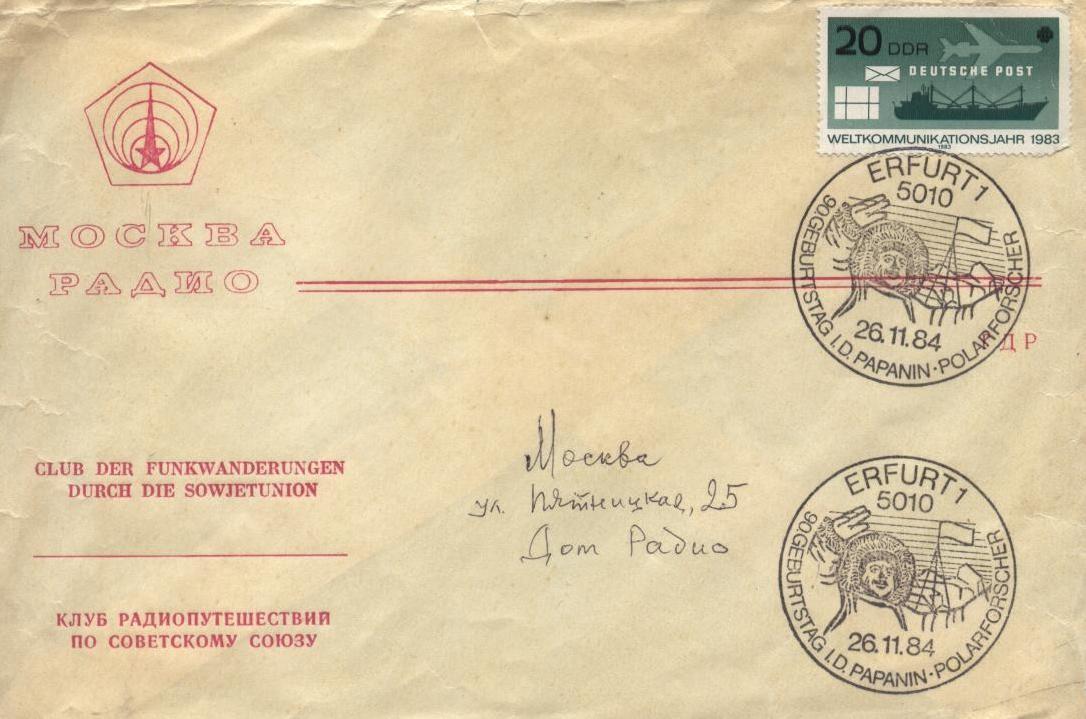 20 DDR
DEUTSCHE POST
WELTKOMMUNIKATIONSJAHR 1983
1983
ERFURT 1
5010
26.11.84
90. GEBURTSTAG I.D. PAPANIN · POLARFORSCHER
МОСКВА
РАДИО
ДР
CLUB DER FUNKWANDERUNGEN
DURCH DIE SOWJETUNION
КЛУБ РАДИОПУТЕШЕСТВИЙ
ПО СОВЕТСКОМУ СОЮЗУ
Москва
ул. Пятницкая, 25
Дом Радио
ERFURT 1
5010
26.11.84
90. GEBURTSTAG I.D. PAPANIN · POLARFORSCHER